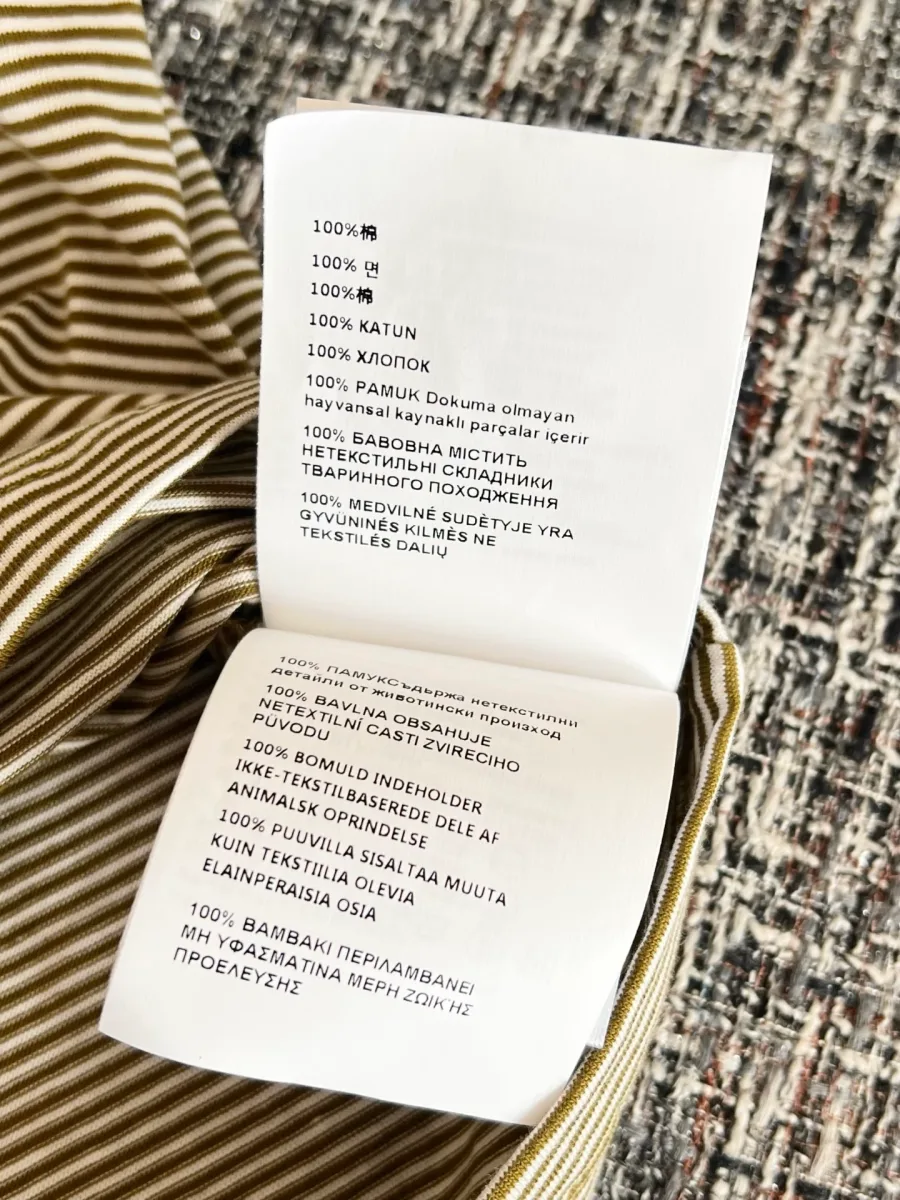 100%棉
100% 면
100%棉
100% KATUN
100% ХЛОПОК
100% PAMUK Dokuma olmayan
hayvansal kaynaklı parçalar içerir
100% БАВОВНА МІСТИТЬ
НЕТЕКСТИЛЬНІ СКЛАДНИКИ
ТВАРИННОГО ПОХОДЖЕННЯ
100% MEDVILNÉ SUDÈTYJE YRA
GYVŪNINÉS KILMÈS NE
TEKSTILÉS DALIŲ
100% ПАМУКСъдържа нетекстилни
детайли от животински произход
100% BAVLNA OBSAHUJE
NETEXTILNÍ CASTI ZVIRECIHO
PŪVODU
100% BOMULD INDEHOLDER
IKKE-TEKSTILBASEREDE DELE AF
ANIMALSK OPRINDELSE
100% PUUVILLA SISALTAA MUUTA
KUIN TEKSTIILIA OLEVIA
ELAINPERAISIA OSIA
100% ΒΑΜΒΑΚΙ ΠΕΡΙΛΑΜΒΑΝΕΙ
ΜΗ ΥΦΑΣΜΑΤΙΝΑ ΜΕΡΗ ΖΩΙΚΉΣ
ΠΡΟΕΛΕΥΣΗΣ